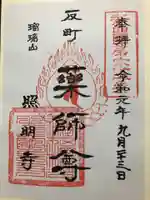 奉拝
令和元年九月二十三日
反町
薬師尊
瑠璃山
照明寺